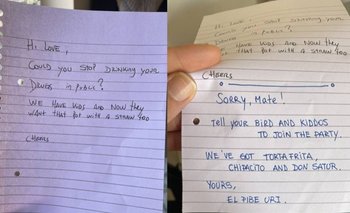 Hi Love,
Could you stop drinking your
Drugs in public?
We have kids and now they
want that pot with a straw too
Cheers
Hi Love,
Could you stop drinking your
Drugs in public?
We have kids and now they
want that pot with a straw too
Cheers
Sorry, Mate!
Tell your bird and kiddos
to join the party.
We've got tortafrita,
chipacito and Don Satur.
Yours,
El Pibe Uri.